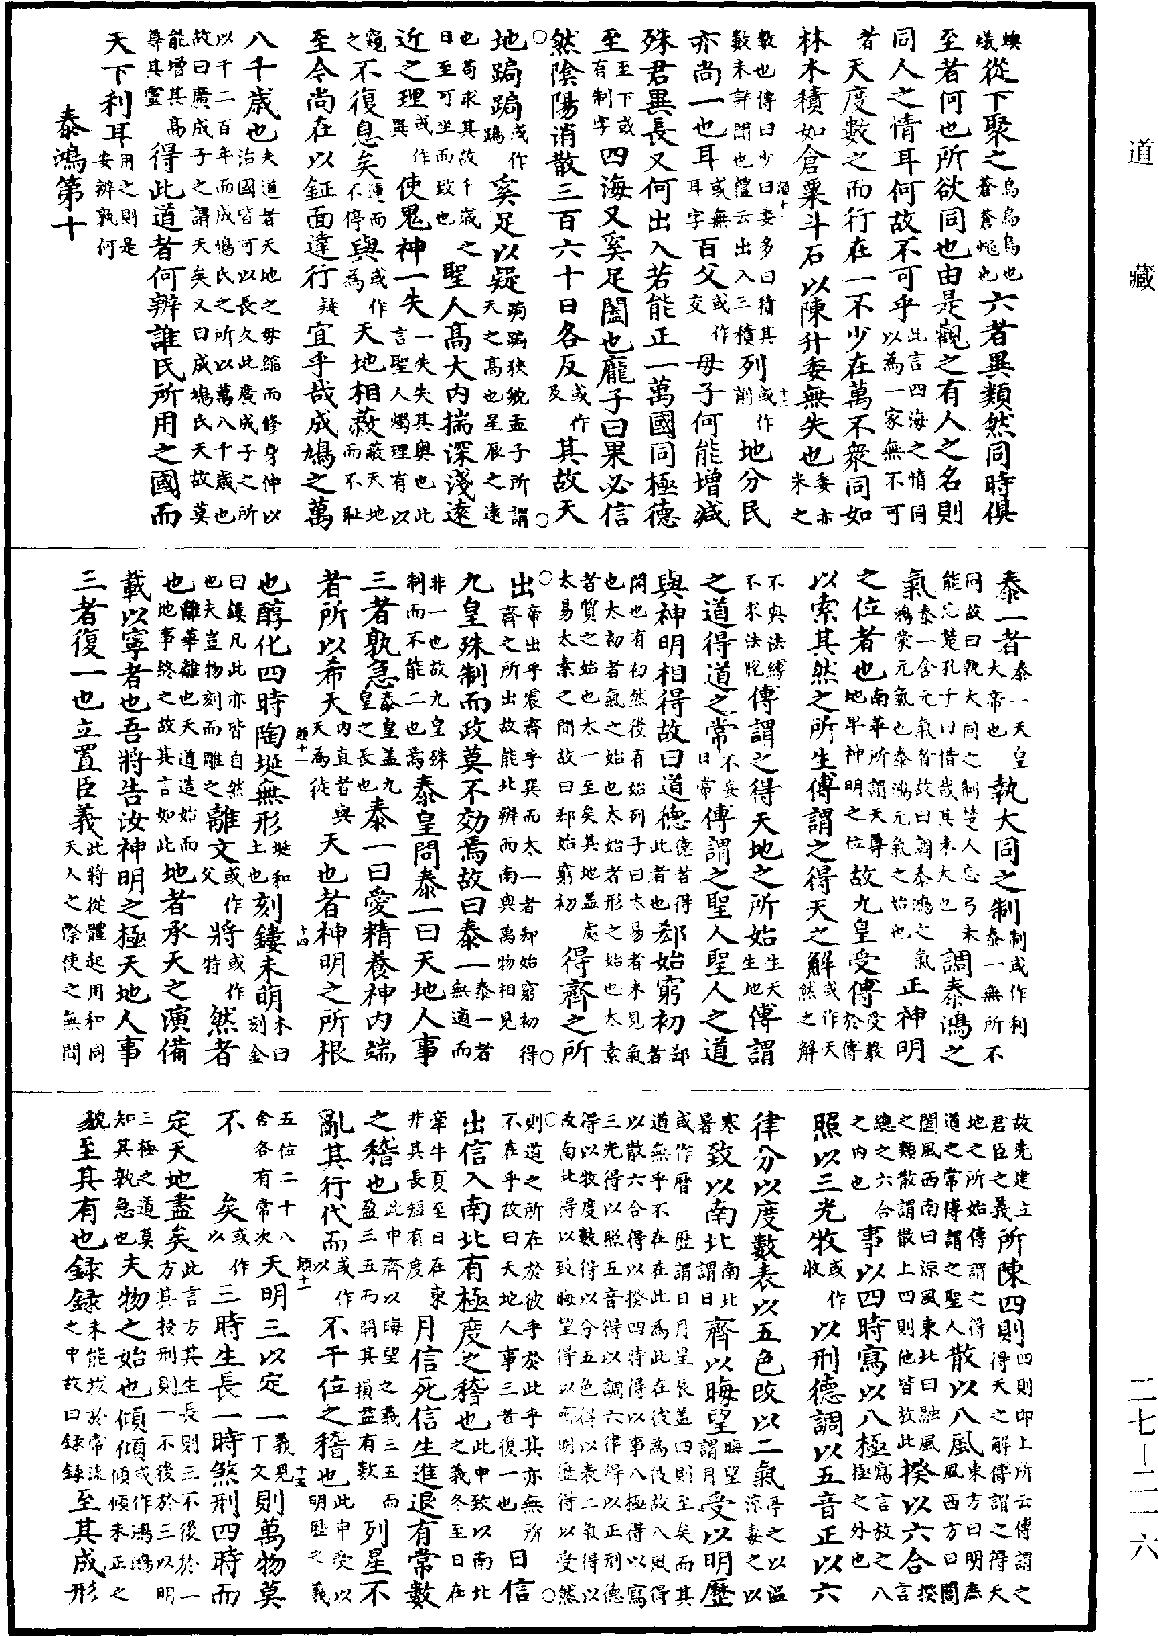 螻蟻從下聚之烏烏烏也蒼蒼蠅也六者異類然同時俱
至者何也所欲同也由是觀之有人之名則
同人之情耳何故不可乎此言四海之情同以為一家無不可
者天度數之而行在一不少在萬不衆同如
林木積如倉粟斗石以陳升委無失也委亦米之
數也傳曰少曰委多曰積其數未詳聞也禮云出入三積列或作削地分民
亦尚一也耳或無耳字百父或作交母子何能增減
殊君異長又何出入若能正一萬國同極德
至至下或有制字四海又奚足闔也龐子曰果必信
然陰陽消散三百六十日各反或作及其故天
地跼跼或作蹻奚足以疑跼跼狹貌孟子所謂天之高也星辰之遠
也苟求其故千歲之日至可坐而致也聖人高大內揣深淺遠
近之理或作異使鬼神一失一失失其奧也此言聖人燭理有以
窺之不復息矣薄而不停與或作為天地相蔽蔽天地而不恥
至今尚在以鉦面達行疑宜乎哉成鳩之萬
八千歲也夫道者天地之母縮而修身伸以治國皆可以長久此廣成子之所
以千二百年而成鳩氏之所以萬八千歲也故曰廣成子之謂天矣又曰成鳩氏天故莫
能增其高尊其靈得此道者何辨誰氏所用之國而
天下利耳用之則是安辨孰何
泰鴻第十
泰一者泰一天皇大帝也執大同之制制或作利泰一無所不
同故曰執大同之制楚人忘弓未能忘楚孔子曰惜哉其未大也調泰鴻之
氣泰一含元氣者故曰調泰鴻之氣鴻蒙元氣也泰鴻元氣之始也正神明
之位者也南華所謂天尊地卑神明之位故九皇受傳受教於傳
以索其然之所生傳謂之得天之解或作天然之解
不與法縛不求法脫傳謂之得天地之所始生天生地傳謂
之道得道之常不妄曰常傳謂之聖人聖人之道
與神明相得故曰道德德若得此者也郄始窮初郄者
間也有初然後有始列子曰太易者未見氣也太初者氣之始也太始者形之始也太素
者質之始也太一至矣其地蓋處太易太素之間故曰郄始窮初得齊之所
出帝出乎震齊乎巽而太一者郄始窮初得齊之所出故能北辨而南與萬物相見
九皇殊制而政莫不効焉故曰泰一泰一者無適而
非一也故九皇殊制而不能二也焉泰皇問泰一曰天地人事
三者孰急泰皇蓋九皇之長也泰一曰愛精養神內端
者所以希天內直者與天為徒天也者神明之所根
也醇化四時陶埏無形埏和土也刻鏤未萌木曰刻金
曰鏤凡此亦皆自然也夫豈物刻而雕之離文或作父將或作特然者
也離華離也天道造始而地事終之故其言如此地者承天之演備
載以寧者也吾將告汝神明之極天地人事
三者復一也立置臣義此將從體起用和同天人之際使之無間
故先建立君臣之義所陳四則四則即上所云傳謂之得天之解傳謂之得天
地之所始傳謂之道之常傳謂之聖人散以八風東方曰明庶風西方曰閶
闔風西南曰涼風東北曰融風之類散謂散上四則他皆放此揆以六合揆言
總之六合之內也事以四時寫以八極寫言放之八極之外也
照以三光牧或作收以刑德調以五音正以六
律分以度數表以五色改以二氣涼燠之以溫
寒暑致以南北南北謂日齊以晦望晦望謂月受以明歷
或作曆歷謂日月星辰蓋四則至矣而其道無乎不在在此為此在彼為彼故八風得
以散六合得以揆四時得以事八極得以寫三光得以照五音得以調六律得以正刑德
得以牧度數得以分五色得以表二氣得以改南北得以致晦望得以齊明歷得以受然
則道之所在於彼乎於此乎其亦無所不在乎故曰天地人事三者復一也日信
出信入南北有極度之稽也此申致以南北之義冬至日在
牽牛夏至日在東井其長短有度月信死信生進退有常數
之稽也此申齊以晦望之義三五而盈三五而闕其損益有數列星不
亂其行代而或作以不干位之稽也此申受以明歷之義
五位二十八舍各有常次天明三以定一義見丁文則萬物莫
不矣或作以三時生長一時煞刑四時而
定天地盡矣此言方其生長則三不後於一方其投刑則一不後於三以明
三極之道莫知其孰急也夫物之始也傾傾或作鴻鴻傾傾未正之
貌至其有也錄錄未能拔於常流之中故曰錄錄至其成形
道藏
二七—二一六